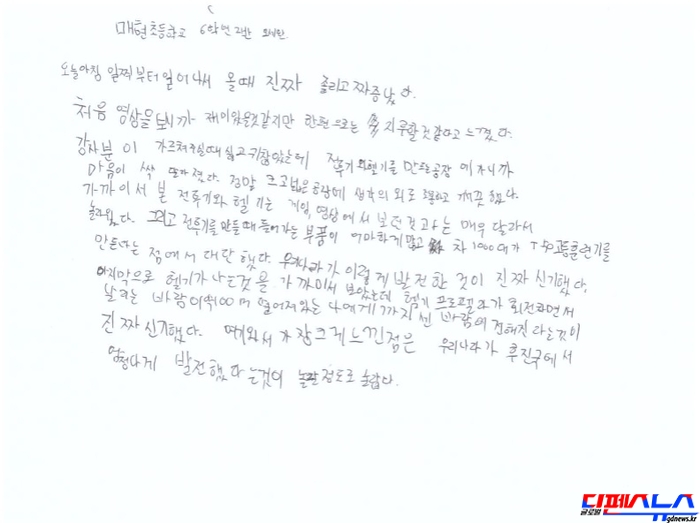 매현초등학교 6학년 2반
오늘아침 일찍부터 일어나서 올때 진짜 졸리고 짜증났다.
처음 영상을 보니까 재미있을것같지만 한편으로는 지루할것같다고 느꼈다.
강사분이 가르쳐주실때 싫고 귀찮았는데 전투기와 헬기를 만드는 공장에 가니까
마음이 싹 달라졌다. 정말 크고 넓은 공장에 생각외로 조용하고 깨끗했다.
가까이서 본 전투기와 헬기는 게임, 영상에서 보던것과는 매우 달라서
놀라웠다. 그리고 전투기를 만들때 들어가는 부품이 어마하게 많고 차 1000대가 T-50고등훈련기를
만든다는 점에서 대단했다. 우리나라가 이렇게 발전한 것이 진짜 신기했다.
마지막으로 헬기가 나는것을 가까이서 보았는데 헬기 프로펠라가 회전하면서
날리는 바람이 100m 떨어져있는 나에게까지 센 바람이 전해진다는것이
진짜 신기했다. 여기와서 가장크게느낀점은 우리나라가 후진국에서
엄청나게 발전했다는것이 놀랄정도로 놀랍다.
디펜스뉴스
글로벌
gdnews.kr